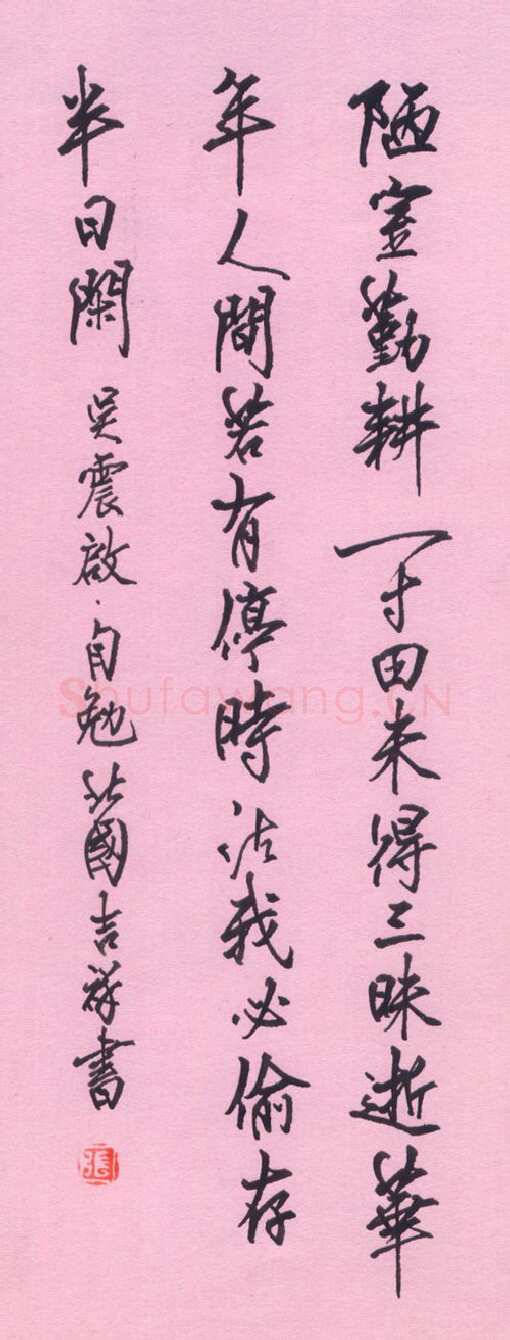 陋室勤耕一寸田未得三昧逝華
年人間若有停時法我必偷存
半日閑 吳震啟·自勉 北國吉祥書
張
Shufawang.CN